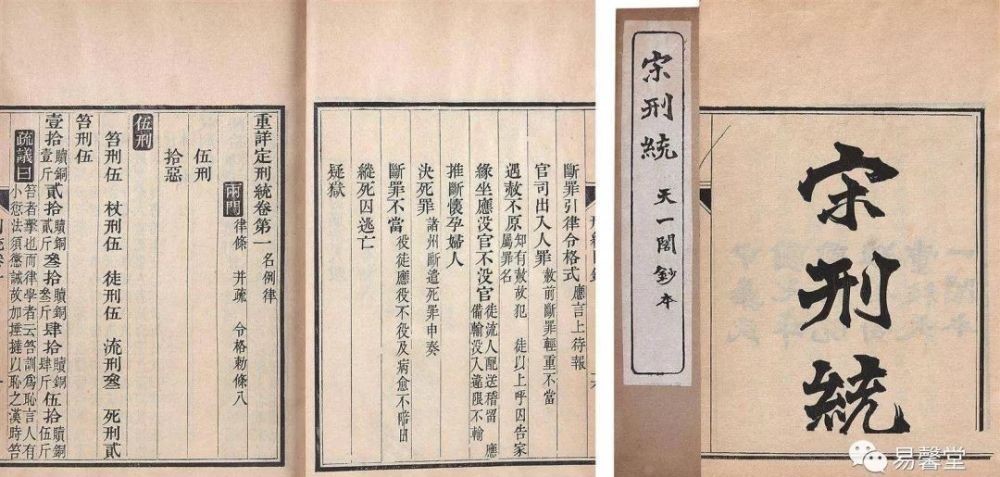 宋刑統
宋刑統 天一閣鈔本
斷罪引律令格式 應言上待報
官司出入人罪 赦前斷罪輕重不當
遇赦不原 知有赦故犯 徒以上呼囚告家屬罪名
緣坐應没官不没官 徒流人配送稽留 應備輸没入違限不輸
推斷懷孕婦人
決死罪 諸州斷遣死罪申奏
斷罪不當 役徒應役不役及病愈不
縱死囚逃亡
疑獄
重詳定刑統卷第一 名例律
兩門 律條 并疏 令格勅條八
伍刑
拾惡
伍刑
笞刑伍 杖刑伍 徒刑伍 流刑叄 死刑貳
笞刑伍
壹拾贖銅壹斤 貳拾贖銅貳斤 叄拾贖銅叄斤 肆拾贖銅肆斤 伍拾贖銅伍斤
疏議曰 笞者擊也而律學者云笞訓爲恥言人有小愆法須懲誡故加捶撻以恥之漢時笞
易馨堂